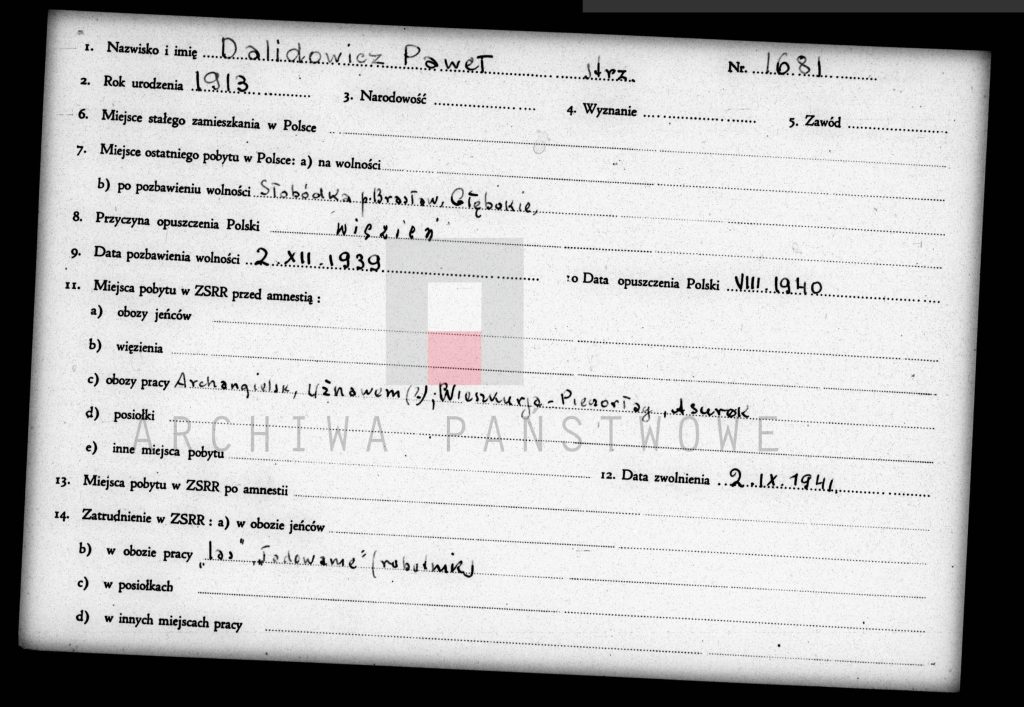 1. Nazwisko i imię Dalidowicz Paweł strz. Nr. 1681
2. Rok urodzenia 1913 3. Narodowość 4. Wyznanie 5. Zawód
6. Miejsce stałego zamieszkania w Polsce
7. Miejsce ostatniego pobytu w Polsce: a) na wolności
b) po pozbawieniu wolności Słobódka p. Brasław, Głębokie,
8. Przyczyna opuszczenia Polski więzień
9. Data pozbawienia wolności 2. XII. 1939 10 Data opuszczenia Polski VIII. 1940
11. Miejsca pobytu w ZSRR przed amnestią :
a) obozy jeńców
b) więzienia
c) obozy pracy Archangielsk, (?);
d) posiołki
ARCHIWA PAŃSTWOWE
e) inne miejsca pobytu 12. Data zwolnienia 2. IX. 1941.
13. Miejsca pobytu w ZSRR po amnestii
14. Zatrudnienie w ZSRR : a) w obozie jeńców
b) w obozie pracy „las" (robotnik)
c) w posiołkach
d) w innych miejscach pracy